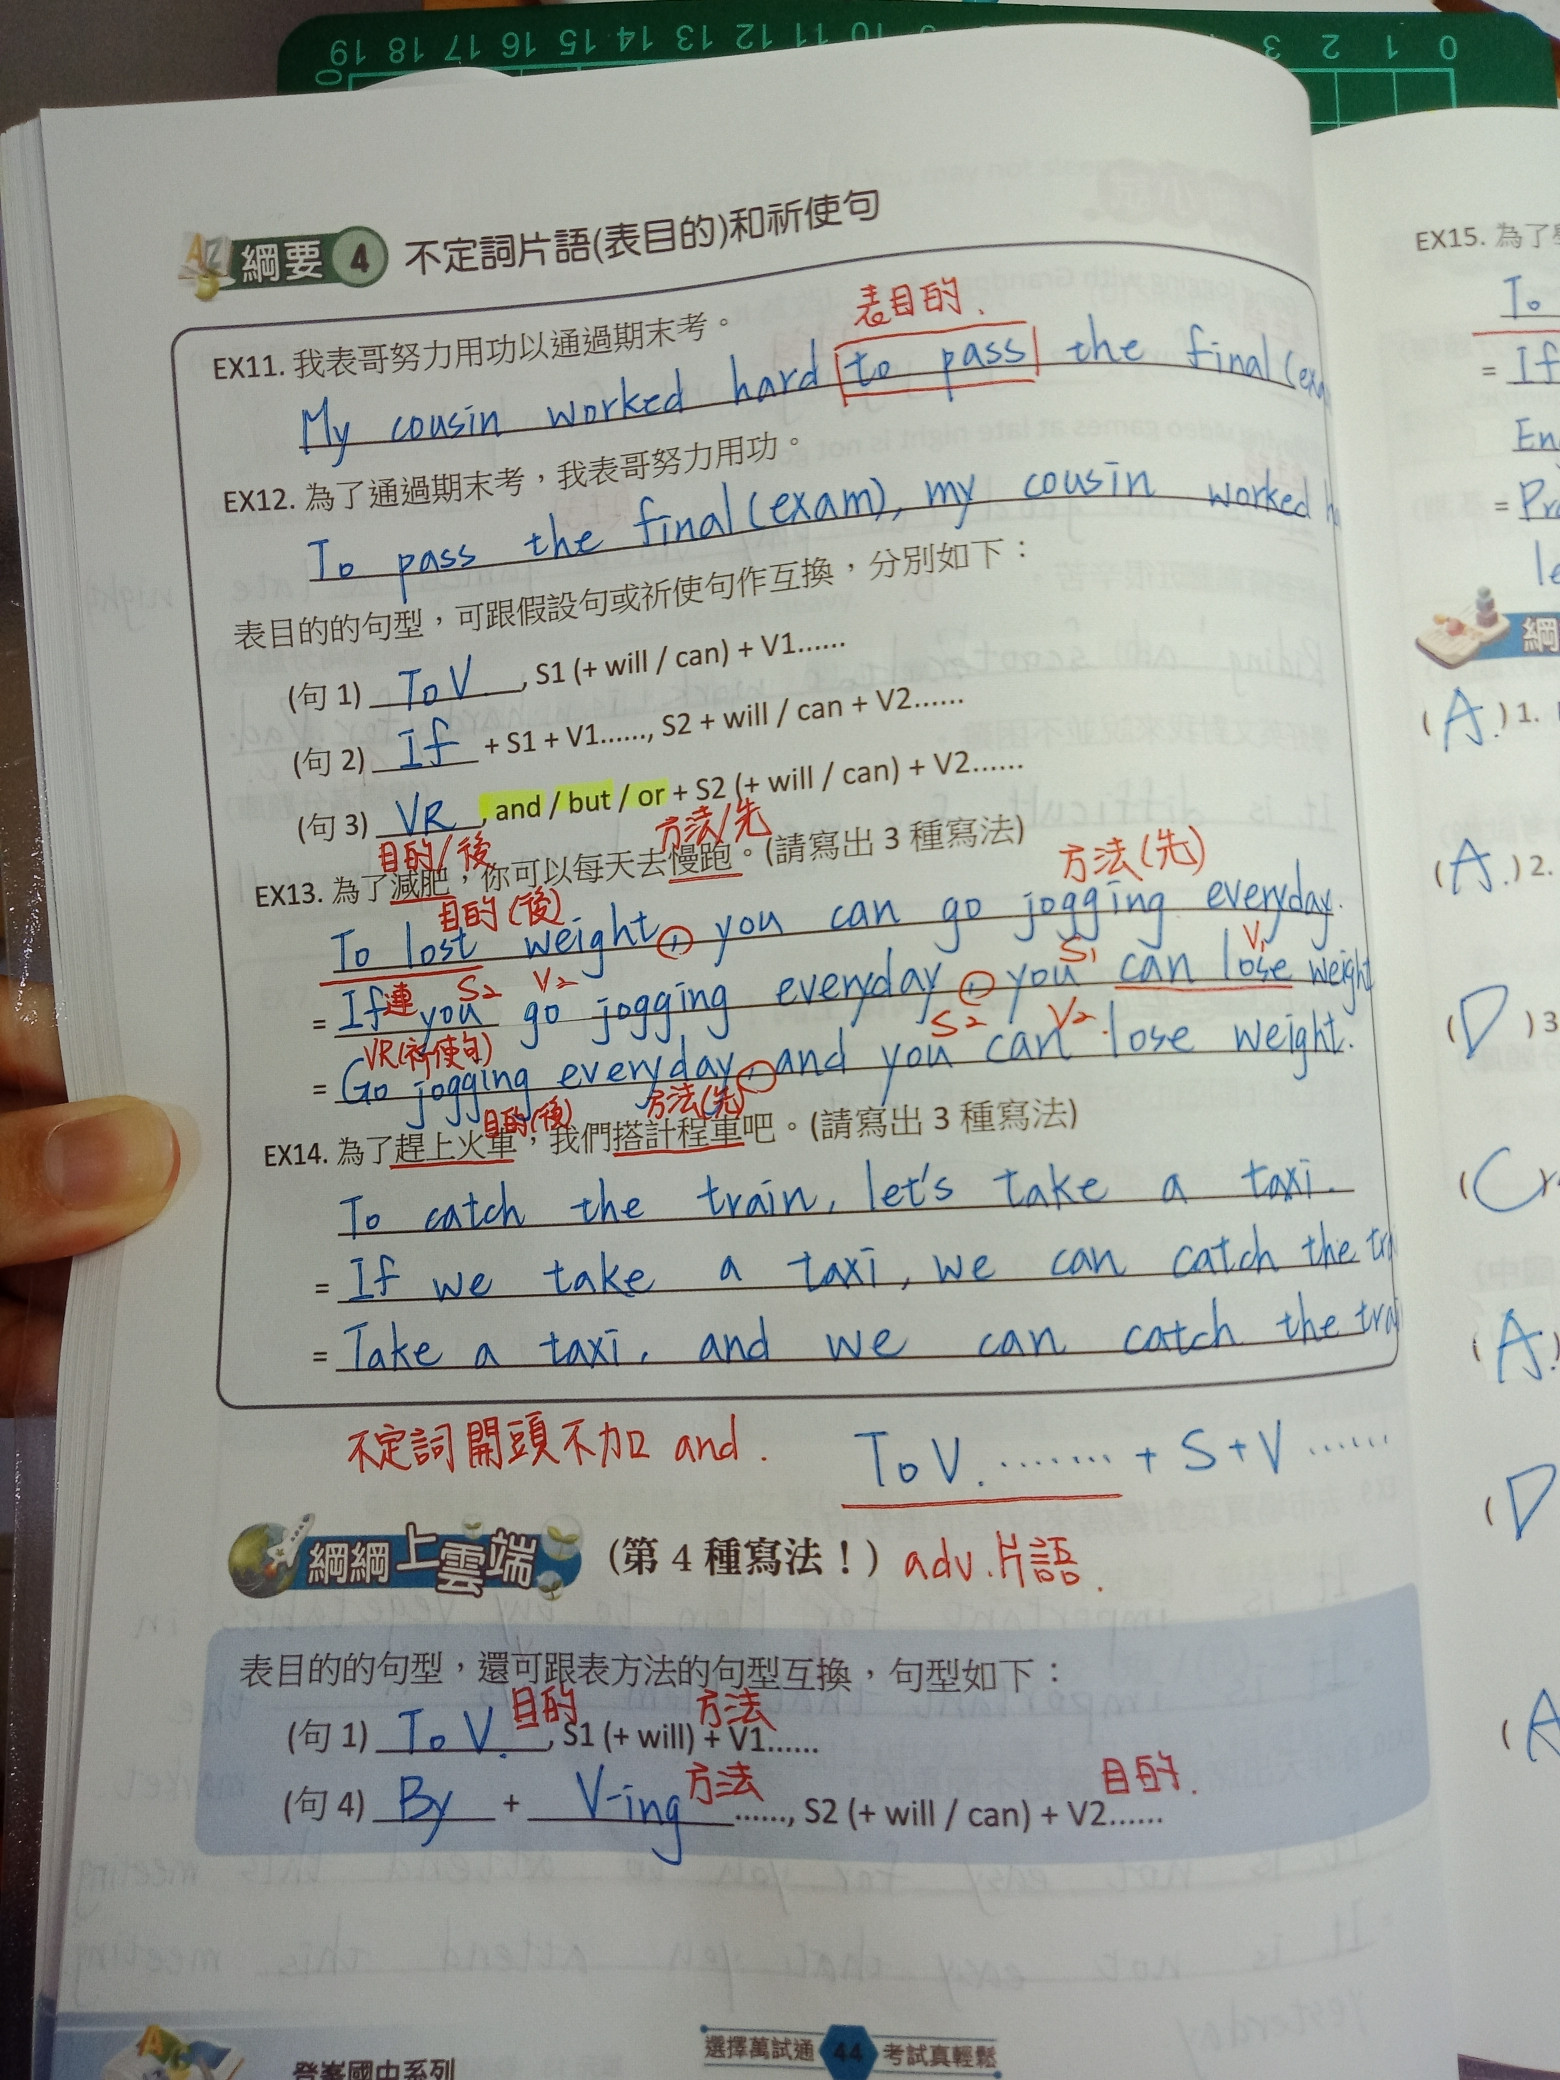 19 18 17 16 15 14 13 12 11 10 3 2 1 0
0
綱要 4 不定詞片語(表目的)和祈使句
表目的.
EX11. 我表哥努力用功以通過期末考。
My cousin worked hard to pass the final (exam
EX12. 為了通過期末考，我表哥努力用功。
To pass the final (exam), my cousin worked
表目的的句型，可跟假設句或祈使句作互換，分別如下：
(句 1) To V , S1 (+ will / can) + V1......
(句 2) If + S1 + V1......, S2 + will / can + V2......
(句 3) VR , and / but / or + S2 (+ will / can) + V2......
目的/後 方法/先
EX13. 為了減肥，你可以每天去慢跑。(請寫出 3 種寫法)
目的(後) 方法(先)
To lost weight, you can go jogging everyday.
連 S2 V2 S1 V1
= If you go jogging everyday, you can lose weight
VR(祈使句) S2 V2.
= Go jogging everyday, and you can lose weight.
目的(後) 方法(先)
EX14. 為了趕上火車，我們搭計程車吧。(請寫出 3 種寫法)
To catch the train, let's take a taxi.
= If we take a taxi, we can catch the tra
= Take a taxi, and we can catch the trai
不定詞開頭不加 and. To V. ........ + S + V ......
綱綱上雲端 (第 4 種寫法！) adv.片語.
表目的的句型，還可跟表方法的句型互換，句型如下：
目的 方法
(句 1) To V. , S1 (+ will) + V1......
方法 目的.
(句 4) By + V-ing ......, S2 (+ will / can) + V2......
登峯國中系列
選擇萬試通 44 考試真輕鬆
EX15. 為了
To
= If
En
= Pr
le
綱
( A. ) 1.
( A. ) 2.
( D ) 3
( C
( A.
( D
( A